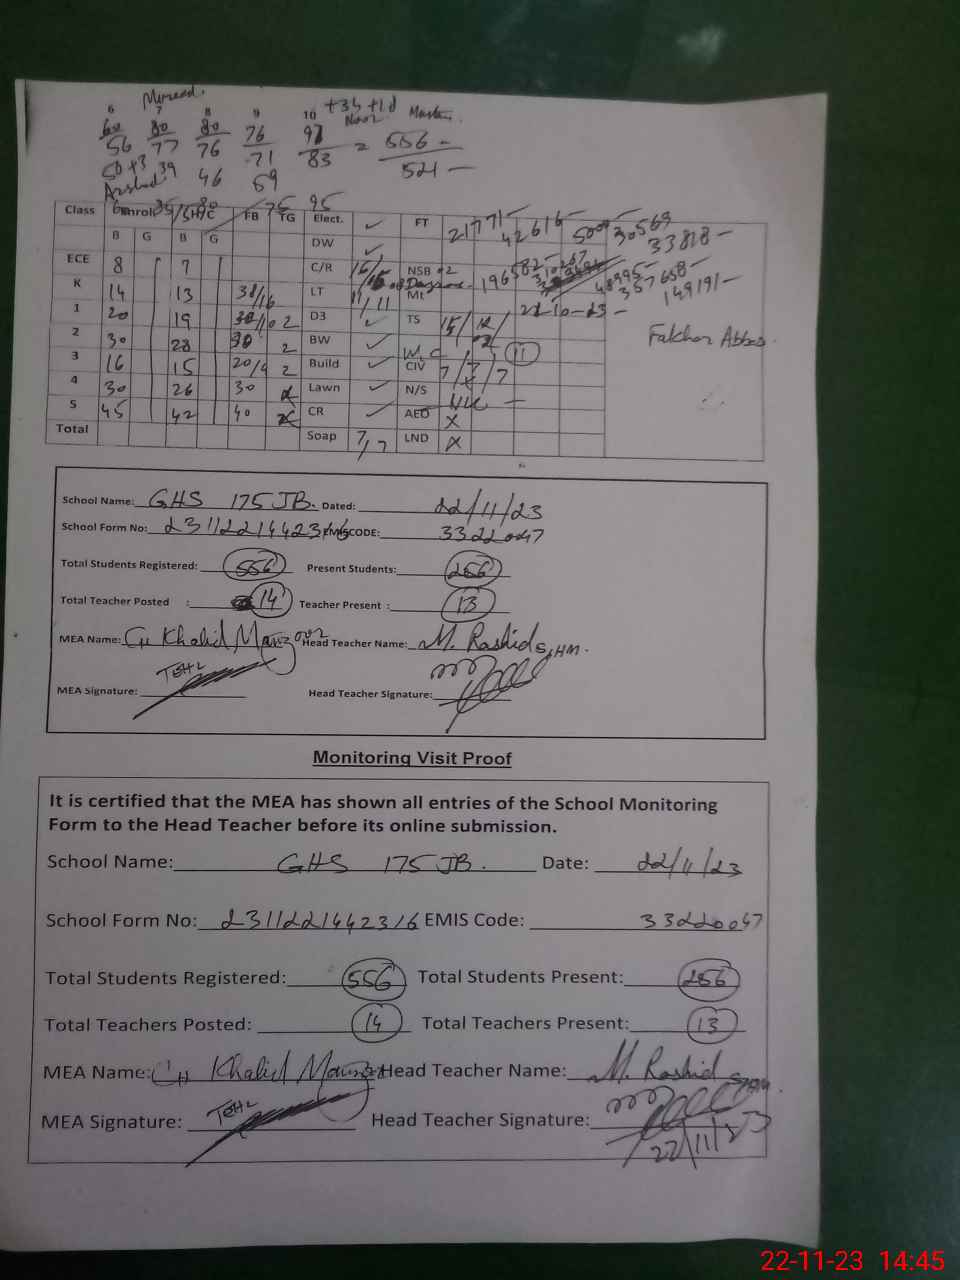 6 7 8 9 10 +34 +18
60 80 80 76 97
56 77 76 71 83 = 556
521
50+3 39 46 69
Arshad
60 35 80 75 95
Class Enroll S/HC FB TG Elect. ✓ FT 21771 42616 500 30569
B G B G DW ✓ 33818
ECE 8 7 C/R 16/ NSB 02 196582
K 14 13 38/16 LT 11/11 Mt 357658 149191
1 20 19 30/10 2 D3 ✓ TS 15/ 12/ 22-10-23
2 30 28 30 2 BW ✓ W.C 11 Fakhar Abbas
3 16 15 20/9 2 Build ✓ CIV 7/7/7
4 30 26 30 x Lawn ✓ N/S Nil
5 45 42 40 x CR ✓ AEO X
Total Soap 7/7 LND X
School Name: GHS 175 JB. Dated: 22/11/23
School Form No: 23112214423/6 EMISCODE: 33220047
Total Students Registered: 556 Present Students: 256
Total Teacher Posted : 14 Teacher Present : 13
MEA Name: CH Khalid Manzoor Head Teacher Name: M. Rashid S.HM.
MEA Signature: Head Teacher Signature:
Monitoring Visit Proof
It is certified that the MEA has shown all entries of the School Monitoring
Form to the Head Teacher before its online submission.
School Name: GHS 175 JB. Date: 22/11/23
School Form No: 23112214423/6 EMIS Code: 33220047
Total Students Registered: 556 Total Students Present: 256
Total Teachers Posted: 14 Total Teachers Present: 13
MEA Name: CH Khalid Manzoor Head Teacher Name: M. Rashid SHM.
MEA Signature: Head Teacher Signature:
22/11/23
22-11-23 14:45